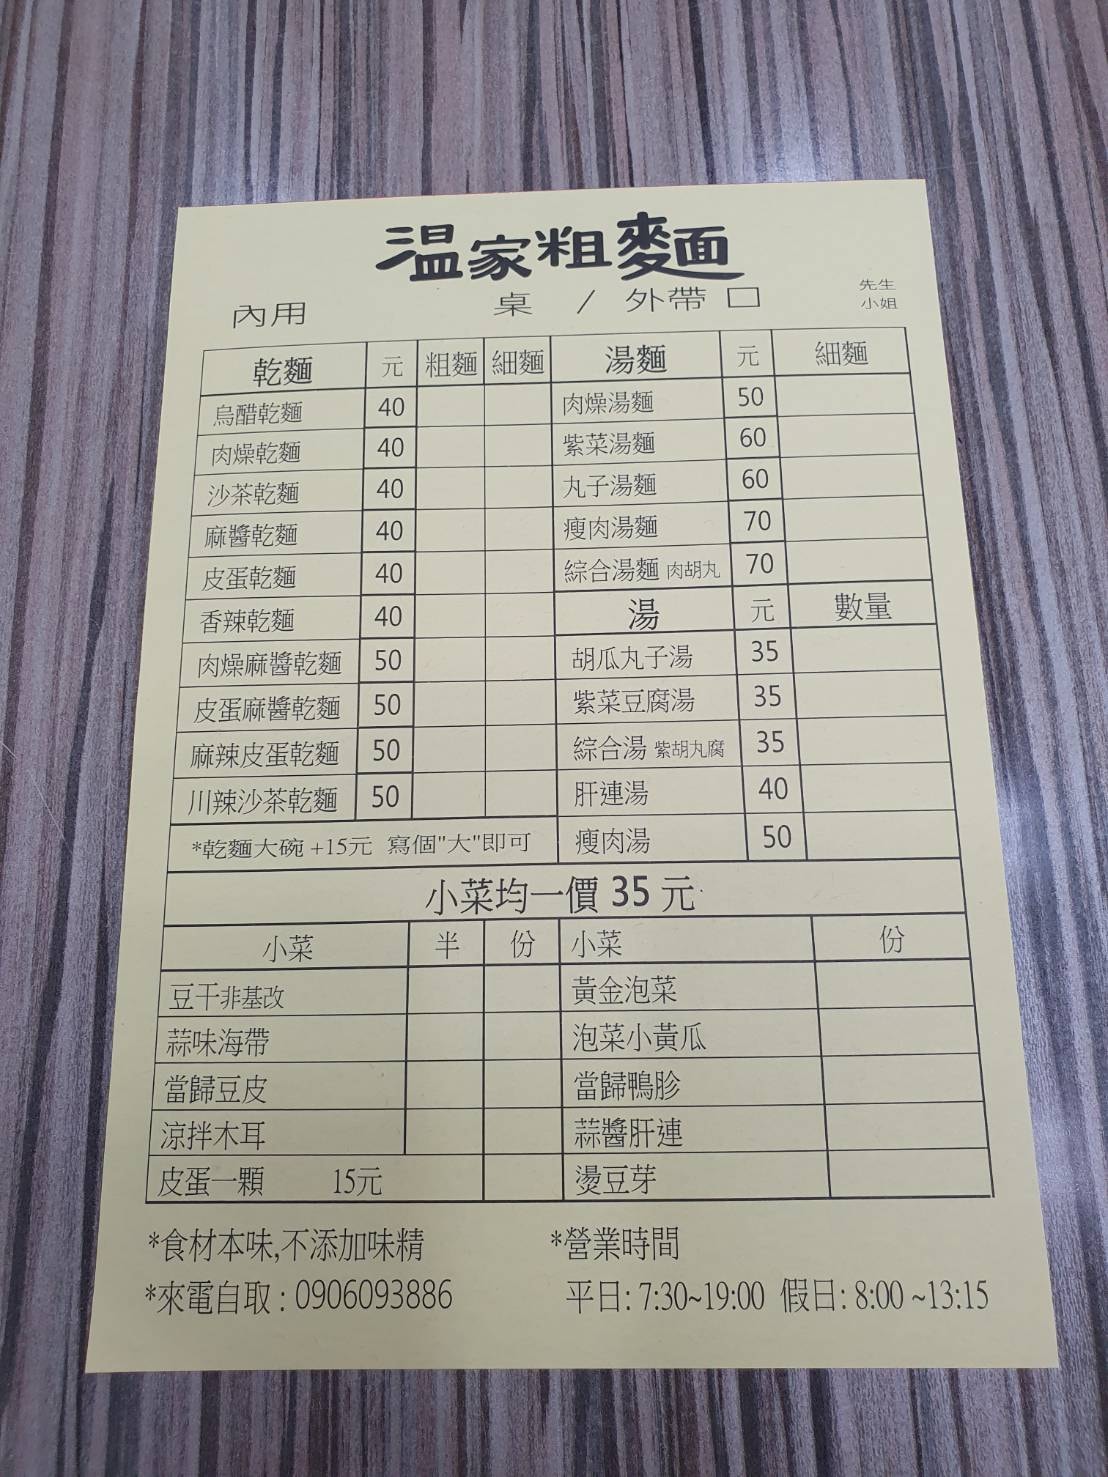 溫家粗麵
內用 桌 / 外帶 □ 先生
小姐
乾麵 元 粗麵 細麵 湯麵 元 細麵
烏醋乾麵 40 肉燥湯麵 50
肉燥乾麵 40 紫菜湯麵 60
沙茶乾麵 40 丸子湯麵 60
麻醬乾麵 40 瘦肉湯麵 70
皮蛋乾麵 40 綜合湯麵 肉胡丸 70
香辣乾麵 40 湯 元 數量
肉燥麻醬乾麵 50 胡瓜丸子湯 35
皮蛋麻醬乾麵 50 紫菜豆腐湯 35
麻辣皮蛋乾麵 50 綜合湯 紫胡丸腐 35
川辣沙茶乾麵 50 肝連湯 40
*乾麵大碗+15元 寫個"大"即可 瘦肉湯 50
小菜均一價 35 元
小菜 半 份 小菜 份
豆干非基改 黃金泡菜
蒜味海帶 泡菜小黃瓜
當歸豆皮 當歸鴨胗
涼拌木耳 蒜醬肝連
皮蛋一顆 15元 燙豆芽
*食材本味,不添加味精 *營業時間
*來電自取:0906093886 平日: 7:30~19:00 假日: 8:00 ~13:15